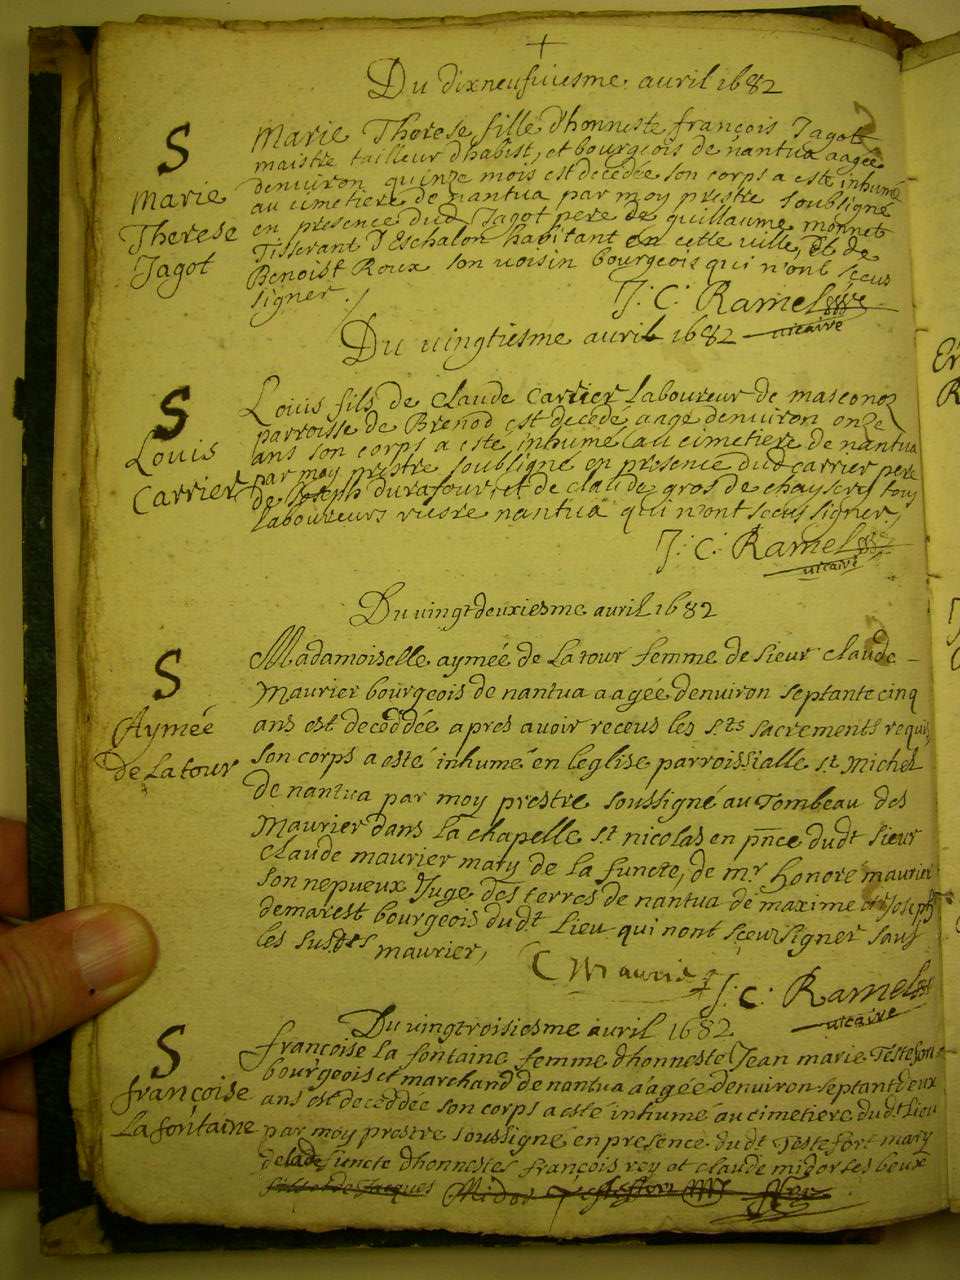 Du dixneufuiesme avril 1682
S
Marie
Therese
Jagot
Marie Therese fille d'honneste françois Jagot
maistre tailleur d'habist, et bourgeois de nantua aagée
denuiron quinze mois est decedée son corps a esté inhumé
au cimetiere de nantua par moy prestre soubsigné
en presence dud Jagot pere de guillaume monnet
Tisserant D'Eschalon habitant en cette ville, Et de
Benoist Roux son voisin bourgeois qui n'ont sceus
signer
J: C: Ramel
vicaire
Du vingtiesme avril 1682
S
Louis
Carrier
Louis fils de Claude Carrier laboureur de masconod
parroisse de Brenod est decedé aagé denuiron onze
ans son corps a esté inhumé au cimetiere de nantua
par moy prestre soubsigné en presence dud carrier pere
de Joseph durafour, et de claude gros de tous
laboureurs riesre nantua qui n'ont sceus signer,
J: C: Ramel
vicaire
Du vingtdeuxiesme avril 1682
S
Aymée
de La tour
Madamoiselle aymée de La tour femme de sieur claude
Maurier bourgeois de nantua aagée denuiron septante cinq
ans est decedée apres avoir receus les sts sacrements requis
son corps a esté inhumé en leglise parroissialle st michel
de nantua par moy prestre soussigné au Tombeau des
Maurier dans la chapelle st nicolas en pnce dudt sieur
claude maurier mary de la functe, de mr honoré maurier
son nepueux Juge des terres de nantua de maxime et Joseph
demarest bourgeois dudt Lieu qui nont sçeu signer sauf
les susdts maurier,
C Maurier
J: C: Ramel
vicaire
Du vingtroisiesme avril 1682
S
françoise
La fontaine
françoise la fontaine femme d'honneste Jean marie Testefort
bourgeois et marchand de nantua aagée denuiron septantdeux
ans est decedée son corps a esté inhumé au cimetiere dudt Lieu
par moy prestre soussigné en presence dudt Testefort mary
de lade functe d'honnestes françois rey et claude midor ses beux
fils et de Jacques Midor Testefort